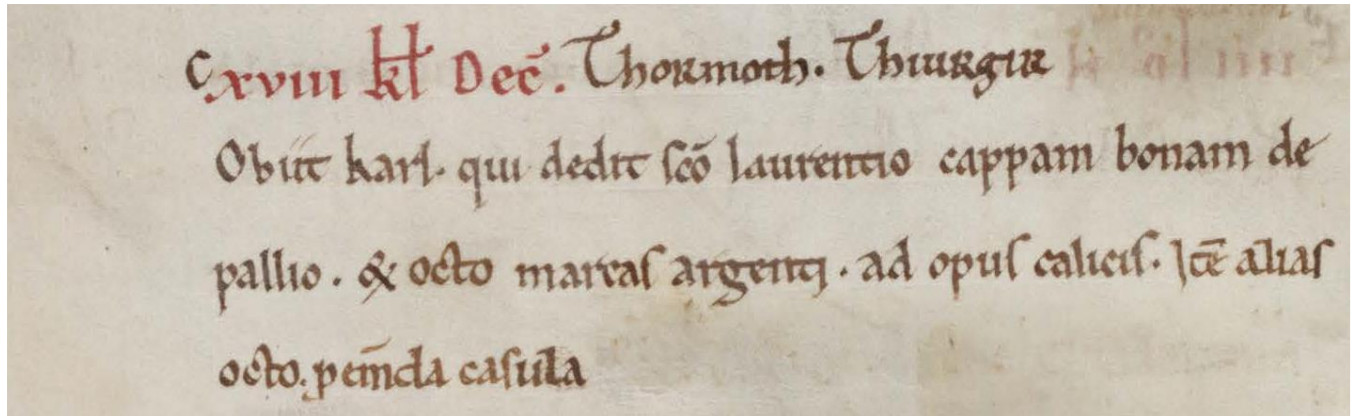 C xviii kł Dec̄. Thormoth. Thiurgir
Obiit karl. qui dedit ſcō laurentio cappam bonam de
pallio. & octo marcaſ argenti. ad opuſ caliciſ. Itē aliaſ
octo. ꝓ em̄da caſula